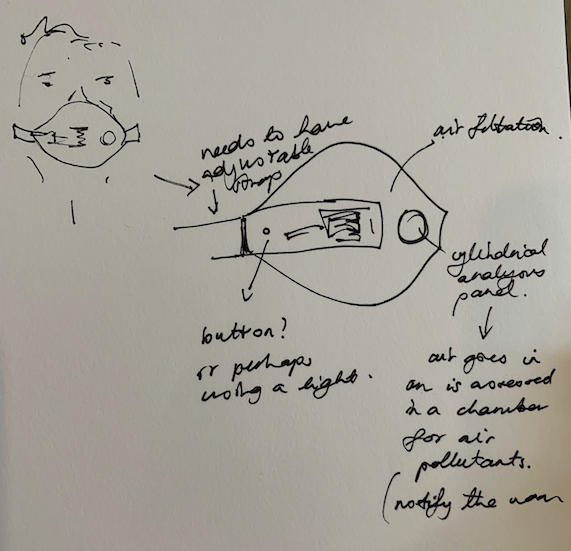 needs to have
adjustable
strap
air filtration.
cylindrical
analysis
panel.
button?
or perhaps
using a light.
air goes in
an is assessed
in a chamber
for air
pollutants.
(notify the